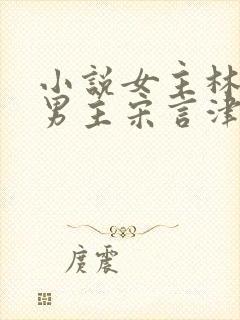 小說女主林
男主宋言津
庹震